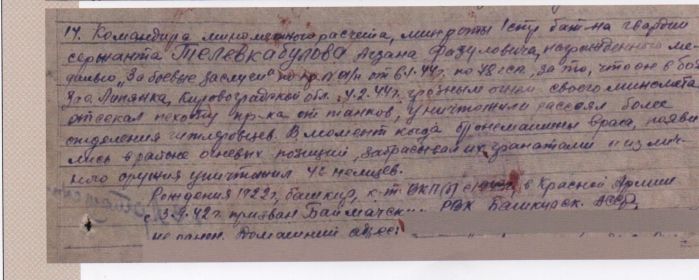 17. Командира минометного расчета, минроты 1 стр. бат-на гвардии
сержанта Телевкабулова Асана Фазуловича, награжденного ме-
далью "За боевые заслуги" по от 6.1.44г. по за то, что он в бою
у с. Липянка, Кировоградской обл. 4.2.44г. огнем своего миномета
отсекал пехоту пр-ка от танков, уничтожили рассеял более
отделения гитлеровцев. В момент когда бронемашины врага, появи
лись в районе огневых позиций, забрасывал их гранатами и из лич-
ного оружия уничтожил немцев.
Рождения 1922г, башкир, к-т ВКП/б/ с в Красной Армии
с 3.9.42г. призван Баймакск... РВК Башкирск. АССР,
не ранен. Домашний адрес: